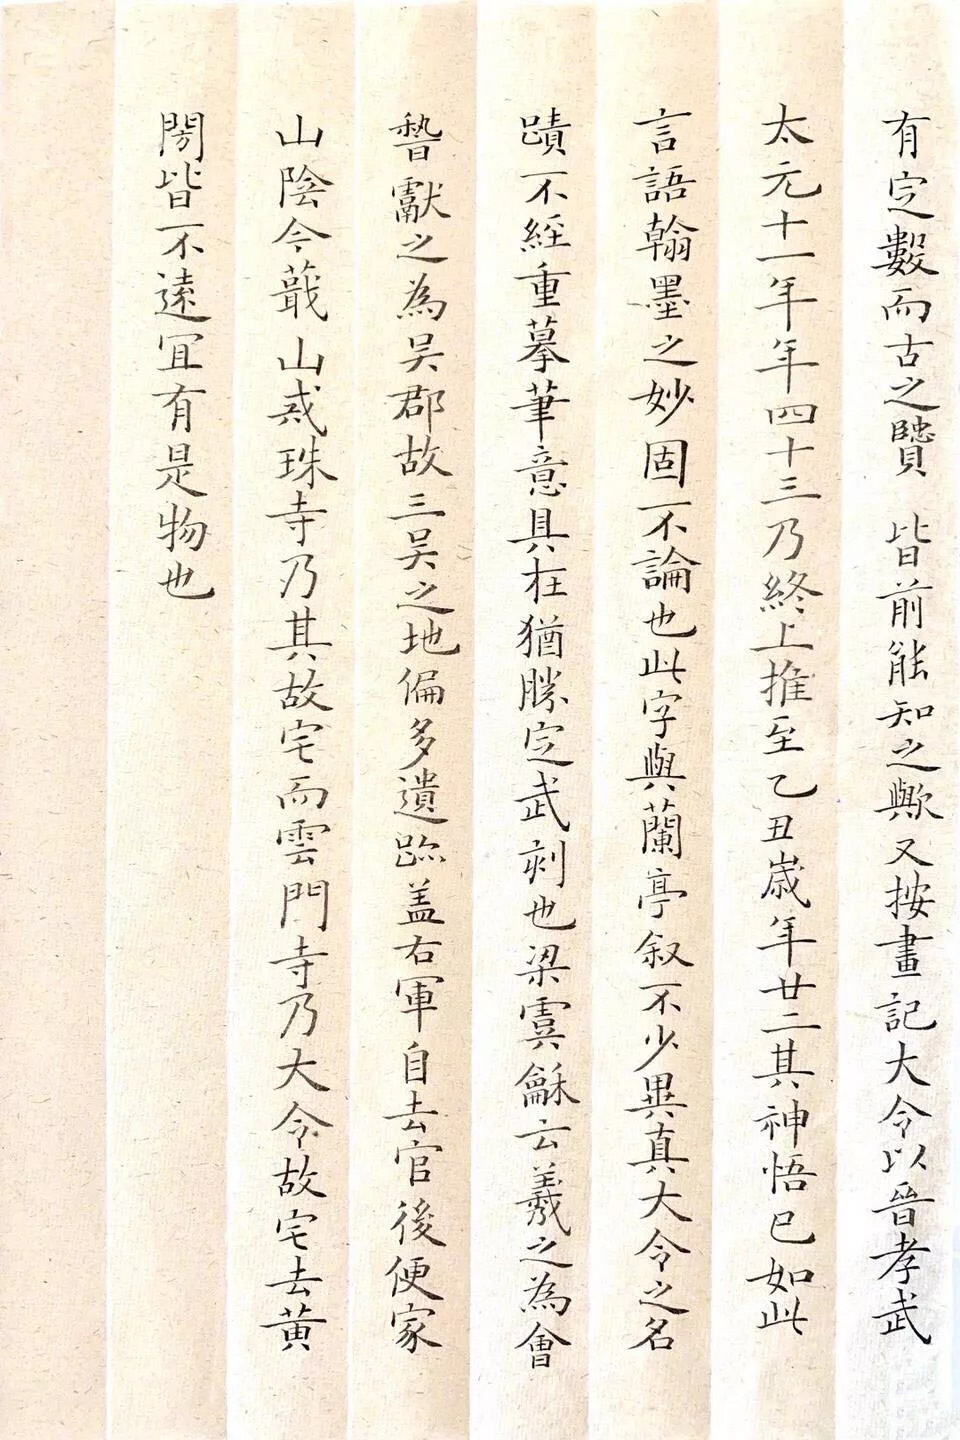 有定數而古之賢　皆前能知之歟又按畫記大令以晉孝武
太元十一年年四十三乃終上推至乙丑歲年廿二其神悟已如此
言語翰墨之妙固不論也此字與蘭亭叙不少異真大令之名
蹟不經重摹筆意具在猶勝定武刻也梁虞龢云羲之為會
嵇獻之為吳郡故三吳之地偏多遺跡盖右軍自去官後便家
山陰今蕺山戒珠寺乃其故宅而雲門寺乃大令故宅去黃
閍皆不遠宜有是物也